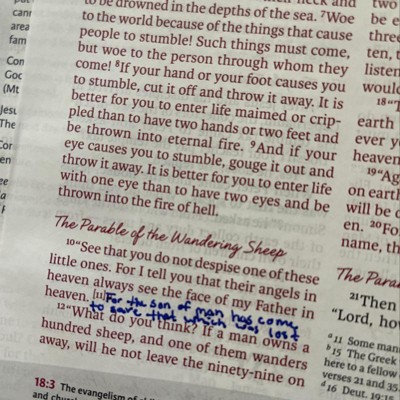 to be drowned in the depths of the sea. 7Woe
to the world because of the things that cause
people to stumble! Such things must come,
but woe to the person through whom they
come! 8If your hand or your foot causes you
to stumble, cut it off and throw it away. It is
better for you to enter life maimed or crip-
pled than to have two hands or two feet and
be thrown into eternal fire. 9And if your
eye causes you to stumble, gouge it out and
throw it away. It is better for you to enter life
with one eye than to have two eyes and be
thrown into the fire of hell.
The Parable of the Wandering Sheep
10“See that you do not despise one of these
little ones. For I tell you that their angels in
heaven always see the face of my Father in
heaven. [11] For the son of man has come
to save that which was lost
12“What do you think? If a man owns a
hundred sheep, and one of them wanders
away, will he not leave the ninety-nine on
18:3 The evangelism of
and church
two
be e
three
ten, t
listen
would
18“T
earth
ever y
heaven
19“Ag
on earth
will be d
en. 20Fo
name, th
The Para
21Then
“Lord, ho
a11 Some man
b15 The Greek
here to a fellow
verses 21 and 35.
d16 Deut. 19:15
cann
area
fam
Con
God
(Mt
Jesu
The